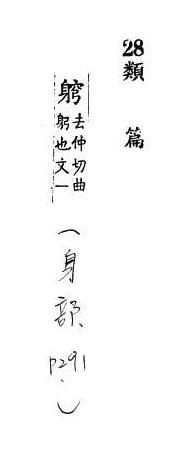 28類篇
䠻去仲切曲
躬也文一
(身部, p291.)